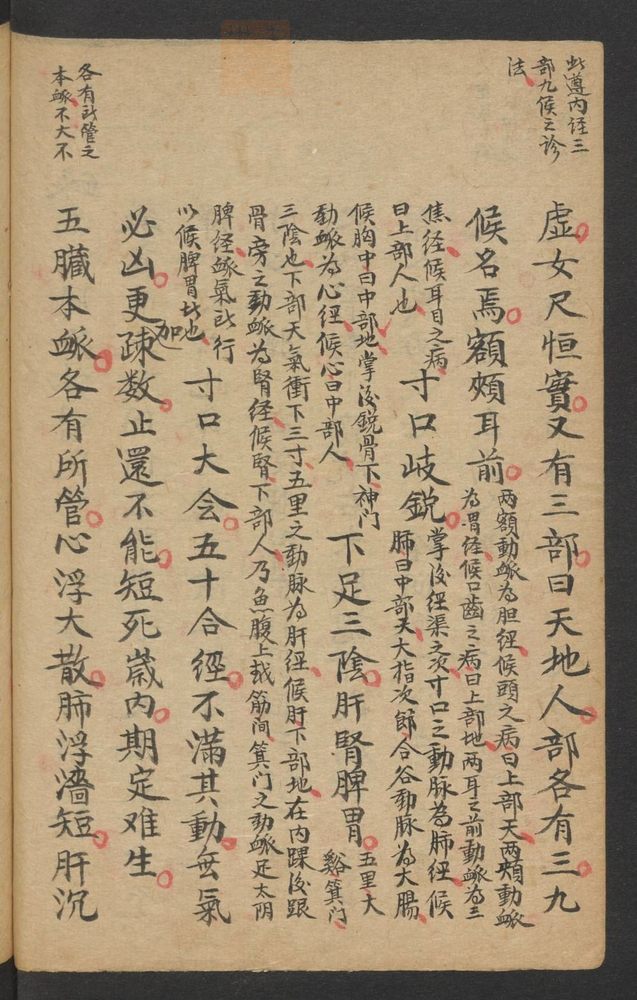 此遵内径三
部九候之診
法
虚女尺恒實又有三部曰天地人部各有三九
候名焉額頰耳前
两額動脉为胆經候頭之病曰上部天两頰動脉
为胃経候口齒之病曰上部地两耳之前動脉为三
焦经候耳目之病
曰上部人也
寸口岐銳
掌后经渠之次寸口之動脉為肺经候
肺曰中部天大指次節合谷動脉为大腸
候胸中曰中部地掌后銳骨下神门
動脉为心經候心曰中部人
下足三陰肝腎脾胃
五里大
谿箕门
三陰也下部天氣衝下三寸五里之動脉为肝经候肝下部地在内踝后跟
骨旁之動脉为腎经候腎下部人乃鱼腹上越筋间箕门之動脉足太阴
脾经脉氣所行
以候脾胃者也
寸口大会五十合經不滿其動無氣
必凶更加踈数止還不能短死歲内期定难生
各有所管之
本脉不大不
五臟本脉各有所管心浮大散肺浮濇短肝沉